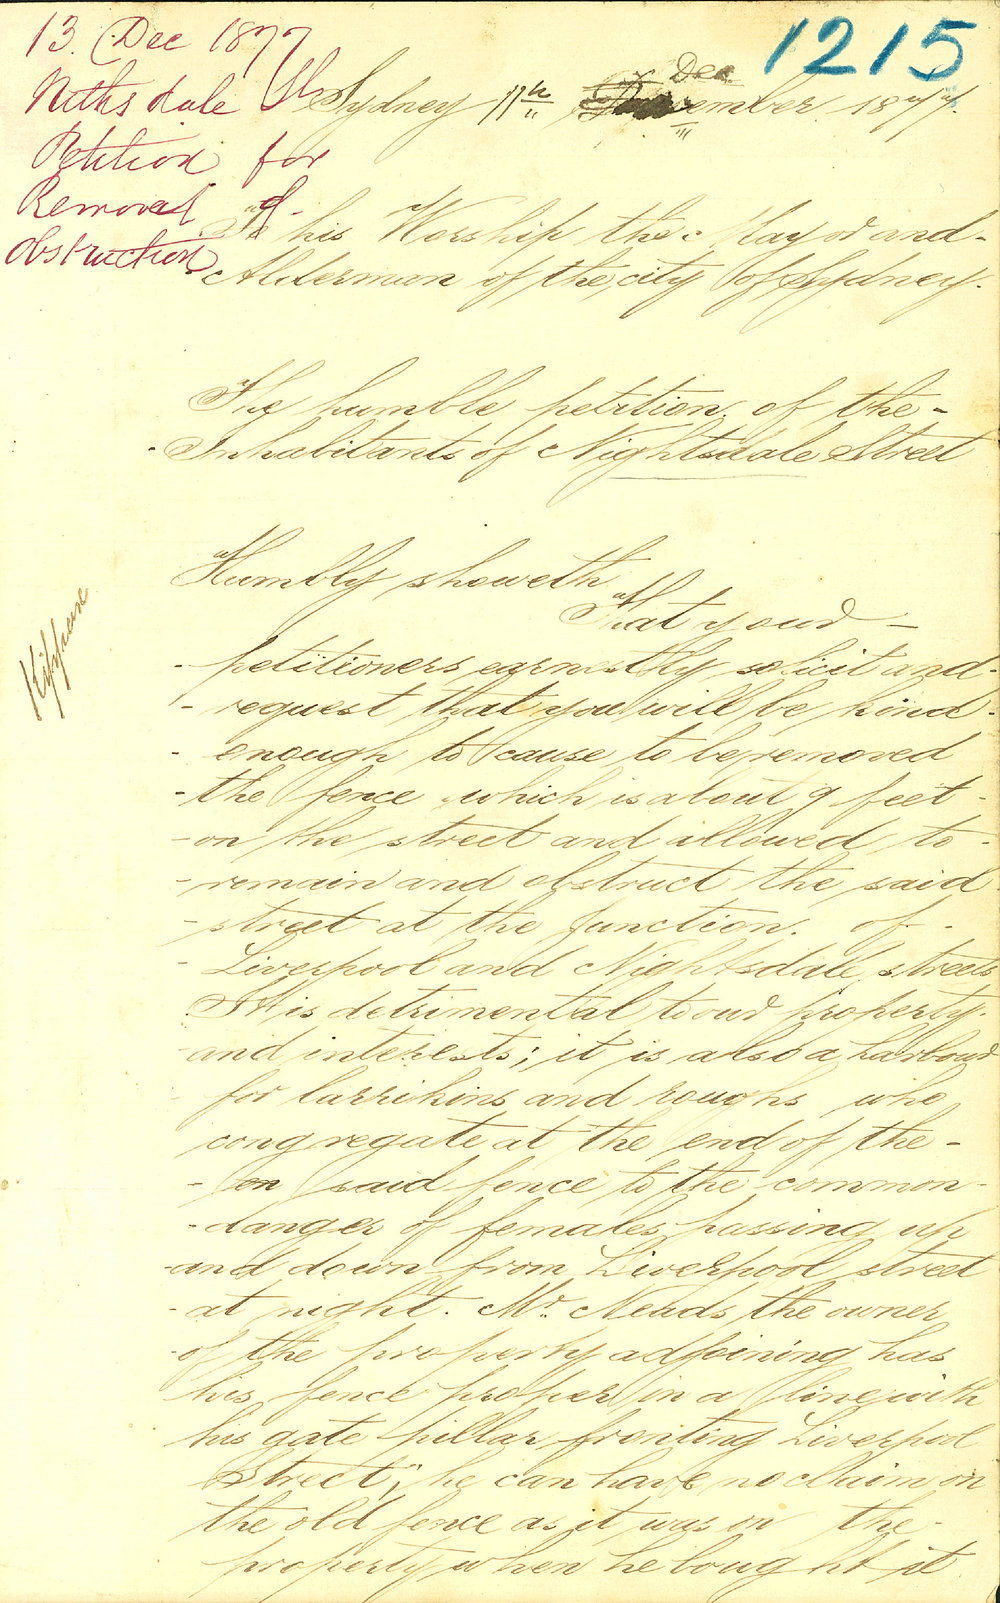 13 Dec 1877
Nithsdale St
Petition for
Removal of
obstruction
1215
Sydney 11th Dec ember 1877.
To his Worship the Mayor and-
Alderman of the city of Sydney.
The humble petition of the-
- Inhabitants of Nightsdale Street
Humbly showeth
That your -
- petitioners earnestly solicit and-
- request that you will be kind-
- enough to cause to be removed
- the fence which is about 9 feet-
- on the street and allowed to-
- remain and obstruct the said
- street at the junction. of-
- Liverpool and Nightsdale streets
It is detrimental to our property-
- and interests; it is also a harbour
for larrikins and roughs who
congregate at the end of the-
- en said fence to the common-
- danger of females passing up
- and down from Liverpool street
- at night. Mr. Neads the owner
- of the property adjoining has
his fence proper in a line with
his gate pillar fronting Liverpool
Street; he can have no claim on
the old fence as it was on the-
property when he bought it
Kippax